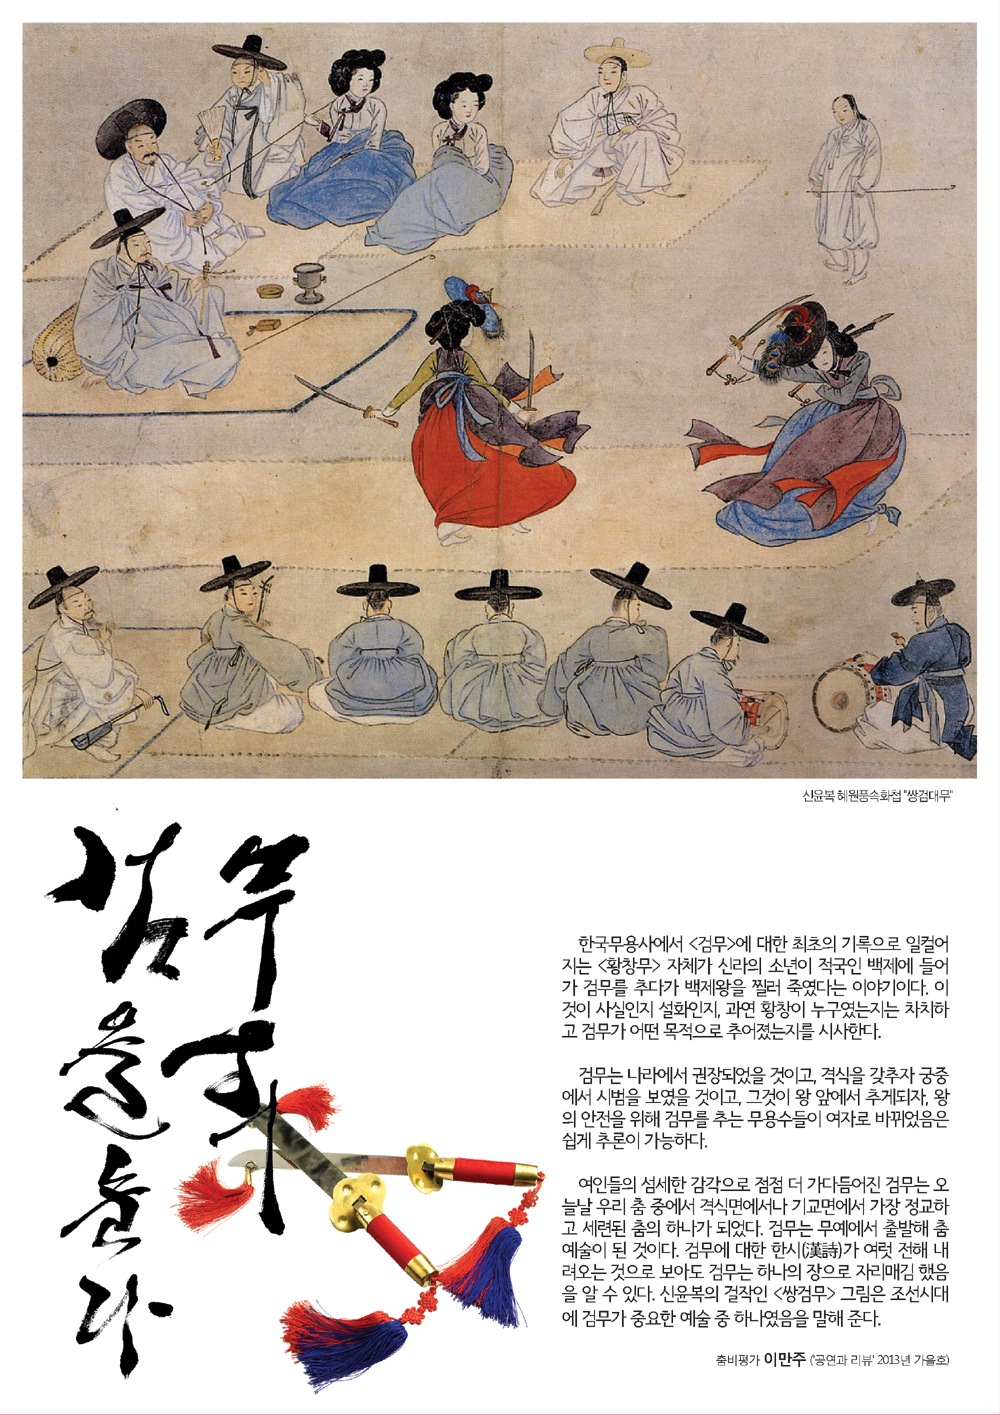 신윤복 혜원풍속화첩 "쌍검대무"
무희
검을들다
한국무용사에서 <검무>에 대한 최초의 기록으로 일컬어
지는 <황창무> 자체가 신라의 소년이 적국인 백제에 들어
가 검무를 추다가 백제왕을 찔러 죽였다는 이야기이다. 이
것이 사실인지 설화인지, 과연 황창이 누구였는지는 차치하
고 검무가 어떤 목적으로 추어졌는지를 시사한다.
검무는 나라에서 권장되었을 것이고, 격식을 갖추자 궁중
에서 시범을 보였을 것이고, 그것이 왕 앞에서 추게되자, 왕
의 안전을 위해 검무를 추는 무용수들이 여자로 바뀌었음은
쉽게 추론이 가능하다.
여인들의 섬세한 감각으로 점점 더 가다듬어진 검무는 오
늘날 우리 춤 중에서 격식면에서나 기교면에서 가장 정교하
고 세련된 춤의 하나가 되었다. 검무는 무예에서 출발해 춤
예술이 된 것이다. 검무에 대한 한시(漢詩)가 여럿 전해 내
려오는 것으로 보아도 검무는 하나의 장으로 자리매김 했음
을 알 수 있다. 신윤복의 걸작인 <쌍검무> 그림은 조선시대
에 검무가 중요한 예술 중 하나였음을 말해 준다.
춤비평가 이만주 ('공연과 리뷰' 2013년 가을호)